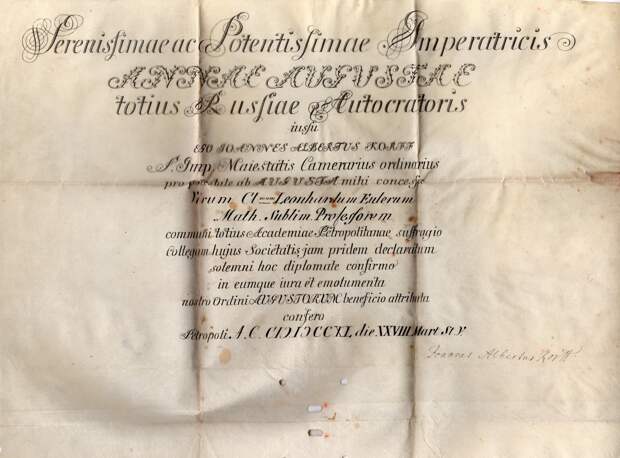 Serenissimae ac Potentissimae Imperatricis
ANNAE AUGUSTAE
totius Russiae Autocratoris
iussu
EGO IOANNES ALBERTUS KORFF
S. Imp. Maiestatis Camerarius ordinarius
pro potestate ab AUGUSTA mihi concessa
Virum Cl Leonhardum Eulerum
Math. Sublim. Professorem
communi totius Academiae Petropolitanae suffragio
Collegam hujus Societatis jam pridem declaratum
solemni hoc diplomate confirmo
in eumque iura et emolumenta
nostro Ordini AUGUSTORUM beneficio attributa
confero
Petropoli A. C. CIƆIƆCCXL die XXVIII Mart St. V.
Ioannes Albertus Korff